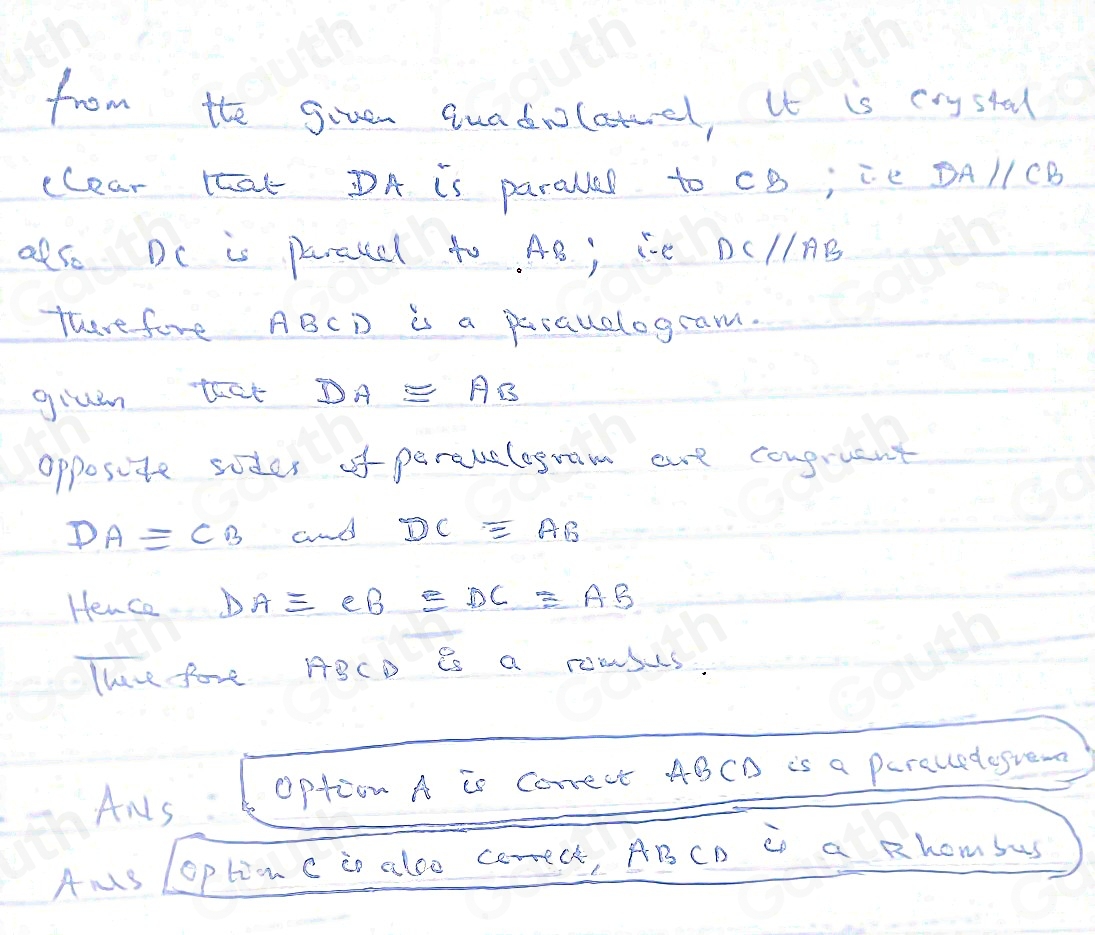 from the given quadrilateral, it is crystal
clear that DA is parallel to CB ; i.e DA // CB
also DC is parallel to AB ; i-e DC // AB
Therefore ABCD is a parallelogram.
given that DA ≡ AB
opposite sides of parallelogram are congruent
DA ≡ CB and DC ≡ AB
Hence DA ≡ CB ≡ DC ≡ AB
Therefore ABCD is a rombus.
ANS : Option A is correct ABCD is a parallelogram
Ans option C is also correct, ABCD is a Rhombus